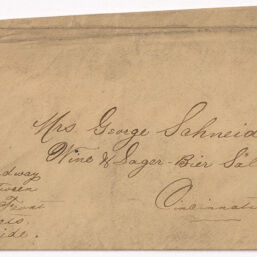 Mrs. George Schneid
Wine & Lager-Bier Sal
Cincinnati
dway
tween
First
ide.